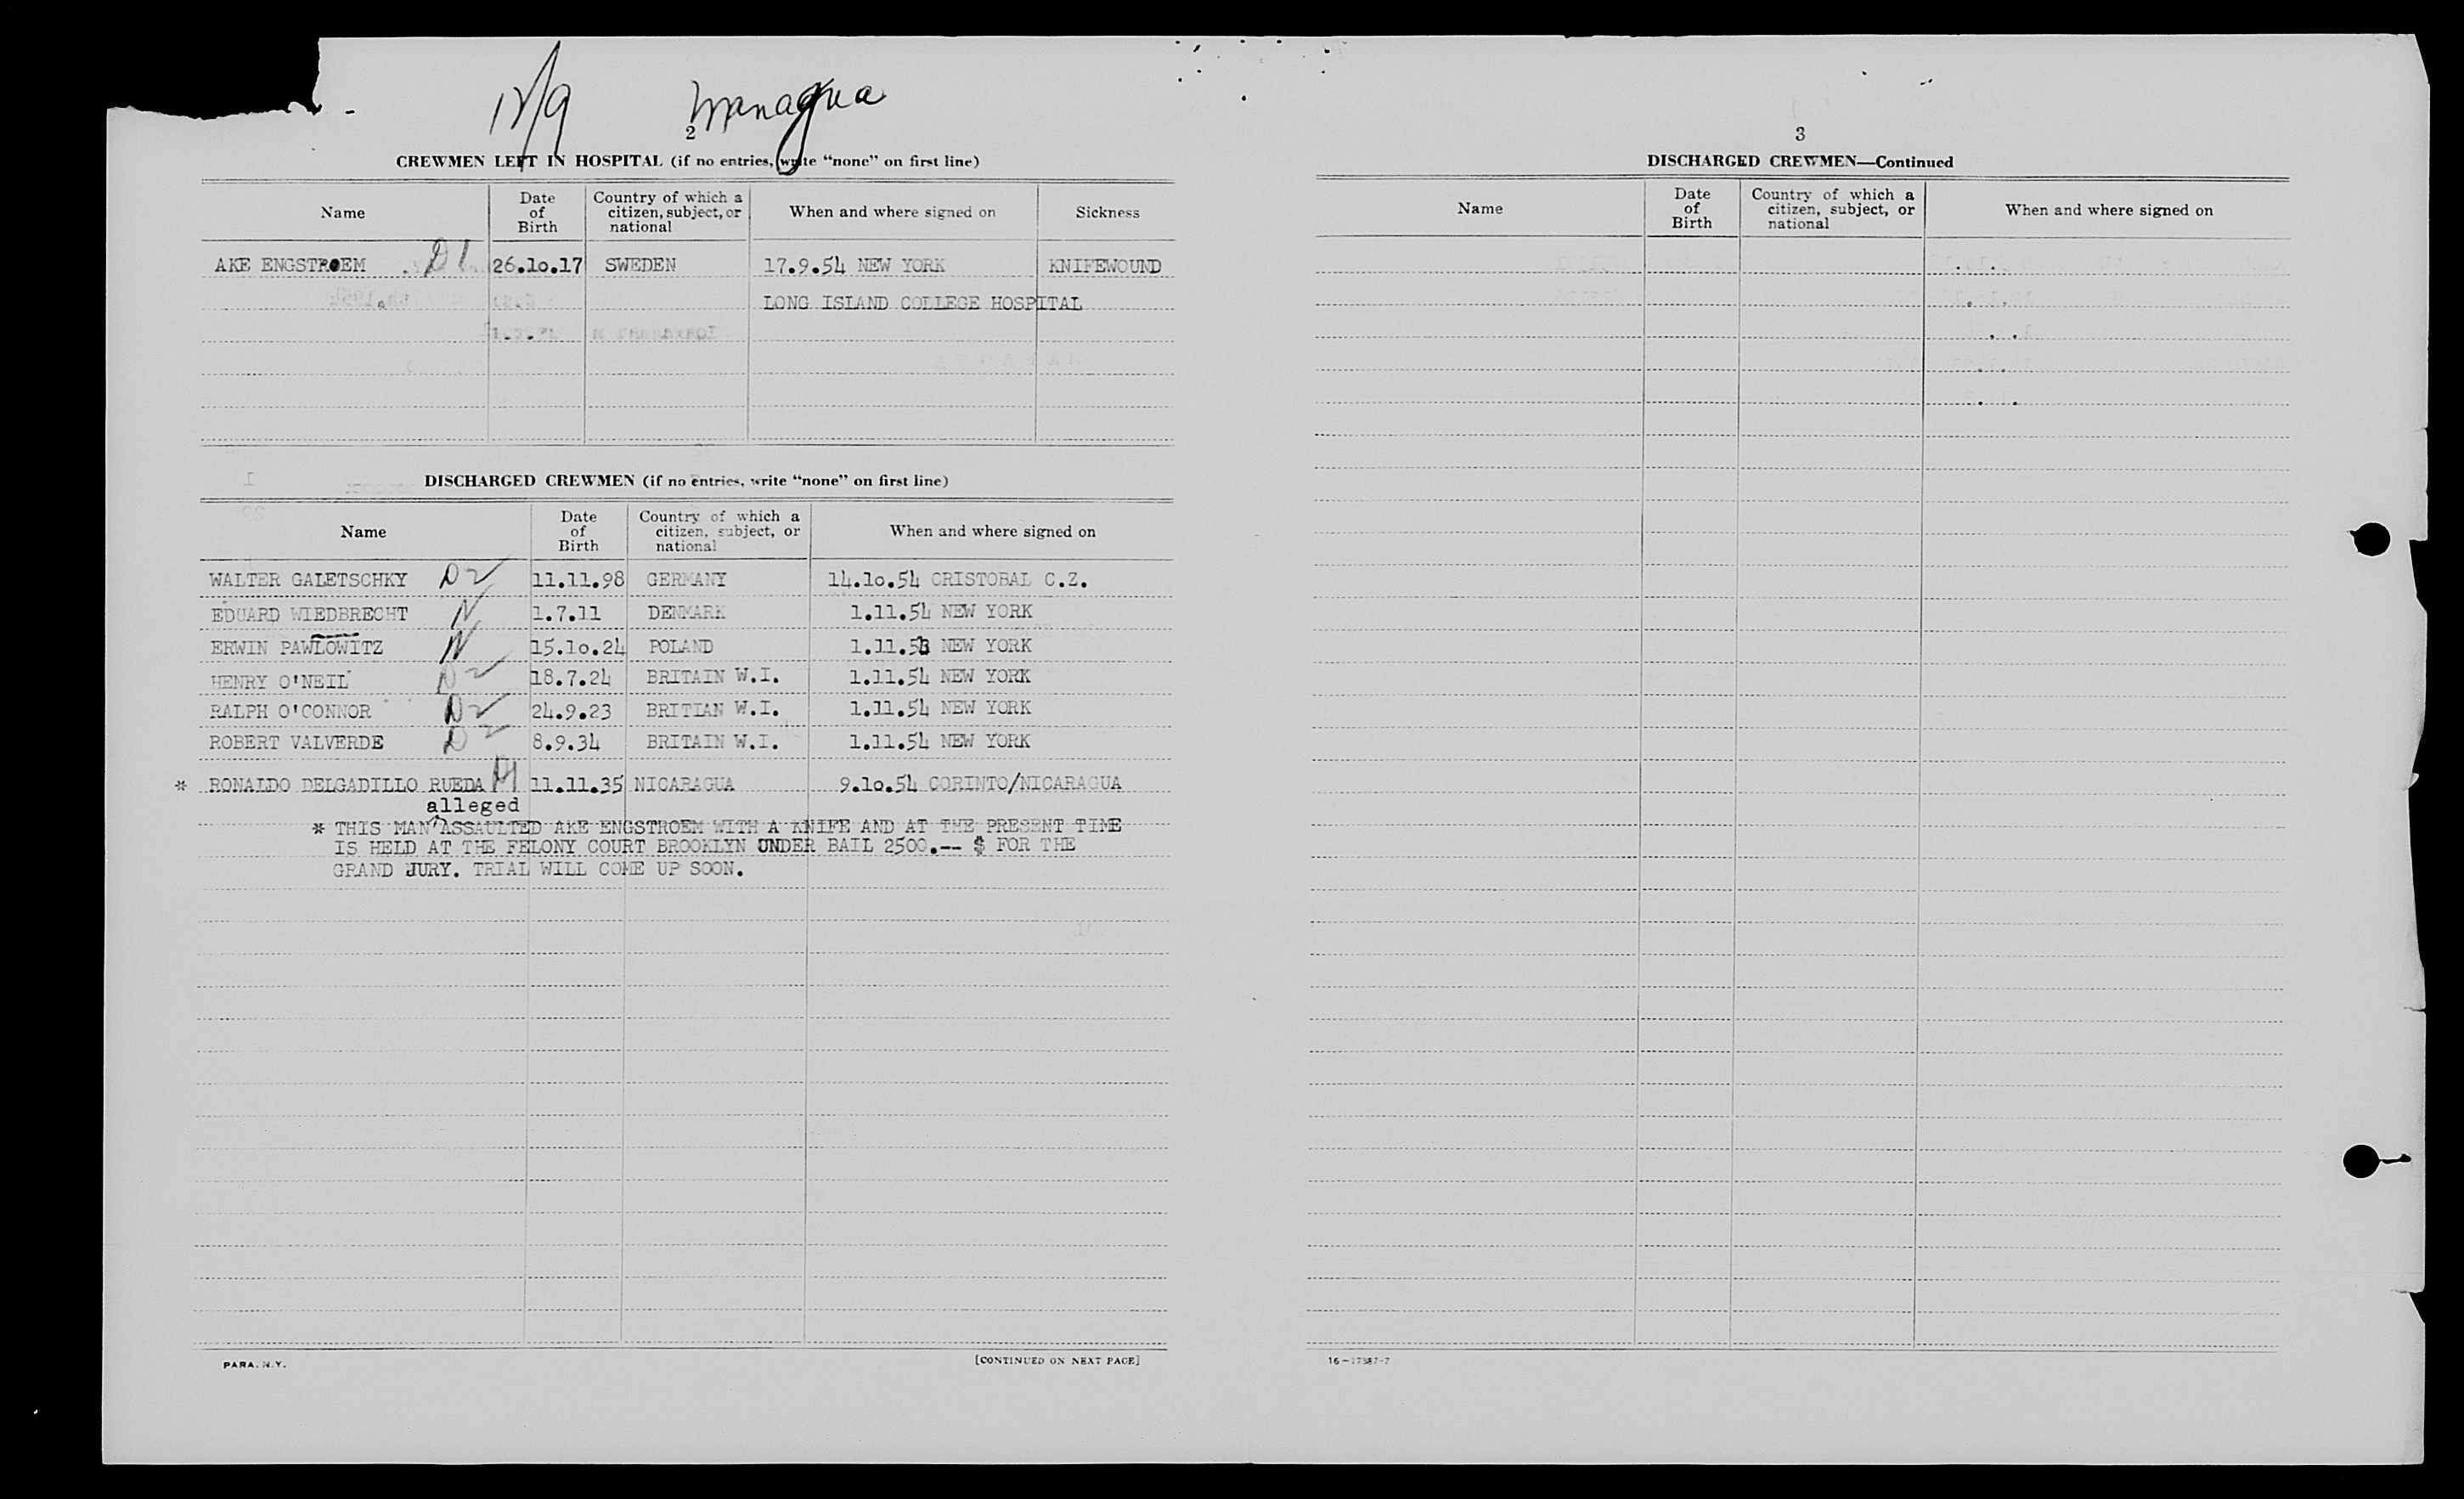 12/9 Managua
2
CREWMEN LEFT IN HOSPITAL (if no entries, write “none” on first line)
Name Date of Birth Country of which a citizen, subject, or national When and where signed on Sickness
AKE ENGSTROEM D1 26.10.17 SWEDEN 17.9.54 NEW YORK KNIFEWOUND
LONG ISLAND COLLEGE HOSPITAL
DISCHARGED CREWMEN (if no entries, write “none” on first line)
Name Date of Birth Country of which a citizen, subject, or national When and where signed on
WALTER GALETSCHKY D2 11.11.98 GERMANY 14.10.54 CRISTOBAL C.Z.
EDUARD WIEDBRECHT N 1.7.11 DENMARK 1.11.54 NEW YORK
ERWIN PAWLOWITZ N 15.10.24 POLAND 1.11.53 NEW YORK
HENRY O'NEIL D2 18.7.24 BRITAIN W.I. 1.11.54 NEW YORK
RALPH O'CONNOR D2 24.9.23 BRITIAN W.I. 1.11.54 NEW YORK
ROBERT VALVERDE D2 8.9.34 BRITAIN W.I. 1.11.54 NEW YORK
* RONALDO DELGADILLO RUEDA 11.11.35 NICARAGUA 9.10.54 CORINTO/NICARAGUA
alleged
* THIS MAN ASSAULTED AKE ENGSTROEM WITH A KNIFE AND AT THE PRESENT TIME
IS HELD AT THE FELONY COURT BROOKLYN UNDER BAIL 2500.-- $ FOR THE
GRAND JURY. TRIAL WILL COME UP SOON.
PARA. N.Y. [CONTINUED ON NEXT PAGE]
3
DISCHARGED CREWMEN—Continued
Name Date of Birth Country of which a citizen, subject, or national When and where signed on
16—17387-7